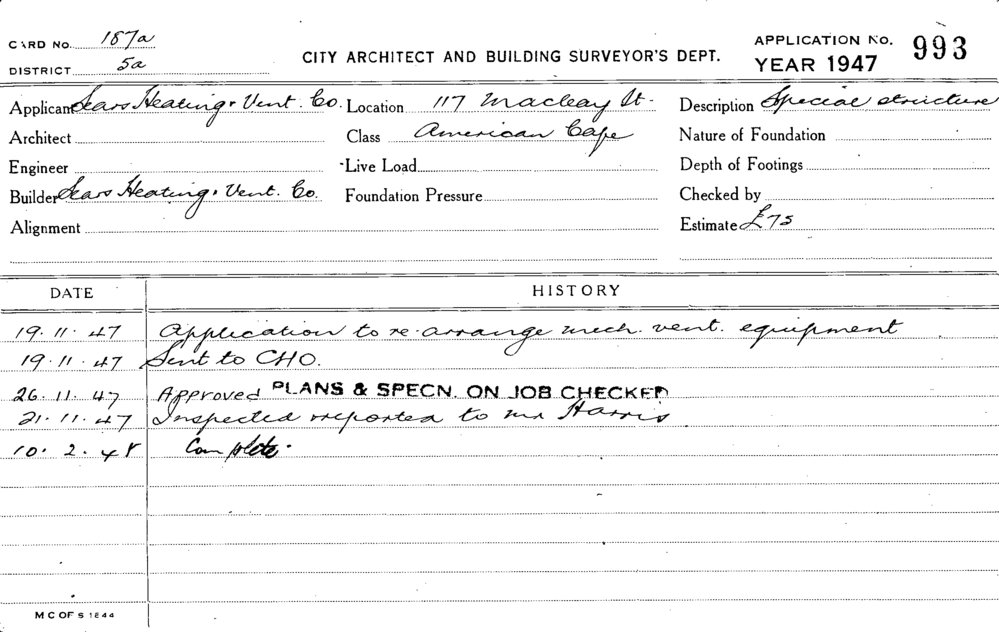 CARD No. 187a
DISTRICT 5a
CITY ARCHITECT AND BUILDING SURVEYOR'S DEPT.
APPLICATION No. 993
YEAR 1947
Applicant Sears Heating & Vent. Co. Location 117 Macleay St. Description Special structure
Architect Class American Cafe Nature of Foundation
Engineer Live Load Depth of Footings
Builder Sears Heating & Vent. Co. Foundation Pressure Checked by
Alignment Estimate £75
DATE HISTORY
19.11.47 Application to re-arrange mech. vent. equipment
19.11.47 Sent to CHO.
26.11.47 Approved PLANS & SPECN. ON JOB CHECKED
21.11.47 Inspected & reported to Mr Harris
10.2.48 Complete.
M C OF S 1844